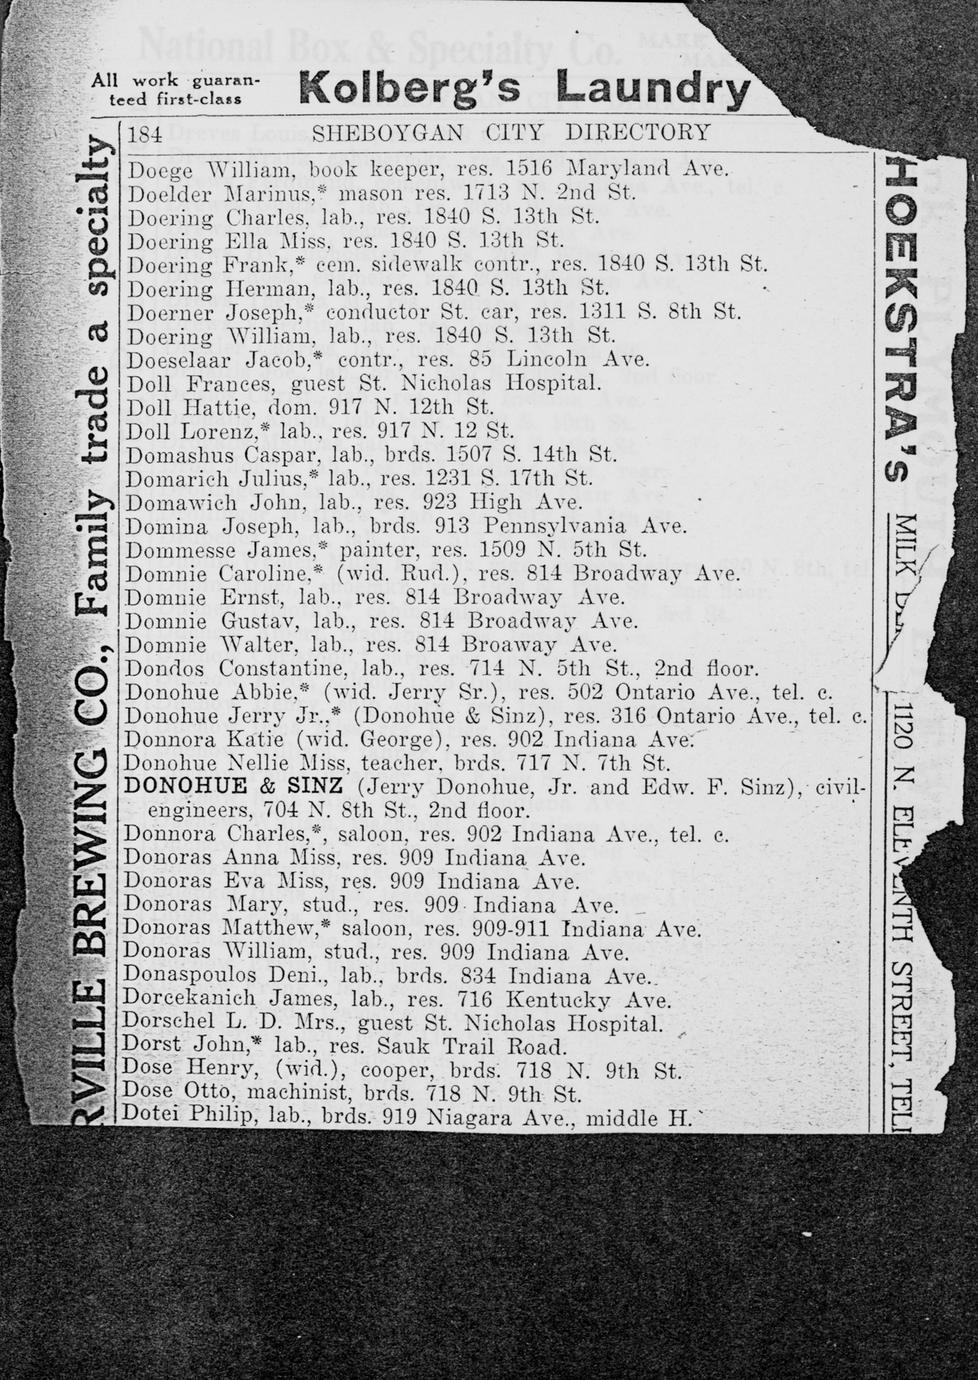 All work guaran-
teed first-class
Kolberg's Laundry
184 SHEBOYGAN CITY DIRECTORY
Doege William, book keeper, res. 1516 Maryland Ave.
Doelder Marinus,* mason res. 1713 N. 2nd St.
Doering Charles, lab., res. 1840 S. 13th St.
Doering Ella Miss, res. 1840 S. 13th St.
Doering Frank,* cem. sidewalk contr., res. 1840 S. 13th St.
Doering Herman, lab., res. 1840 S. 13th St.
Doerner Joseph,* conductor St. car, res. 1311 S. 8th St.
Doering William, lab., res. 1840 S. 13th St.
Doeselaar Jacob,* contr., res. 85 Lincoln Ave.
Doll Frances, guest St. Nicholas Hospital.
Doll Hattie, dom. 917 N. 12th St.
Doll Lorenz,* lab., res. 917 N. 12 St.
Domashus Caspar, lab., brds. 1507 S. 14th St.
Domarich Julius,* lab., res. 1231 S. 17th St.
Domawich John, lab., res. 923 High Ave.
Domina Joseph, lab., brds. 913 Pennsylvania Ave.
Dommesse James,* painter, res. 1509 N. 5th St.
Domnie Caroline,* (wid. Rud.), res. 814 Broadway Ave.
Domnie Ernst, lab., res. 814 Broadway Ave.
Domnie Gustav, lab., res. 814 Broadway Ave.
Domnie Walter, lab., res. 814 Broaway Ave.
Dondos Constantine, lab., res. 714 N. 5th St., 2nd floor.
Donohue Abbie,* (wid. Jerry Sr.), res. 502 Ontario Ave., tel. c.
Donohue Jerry Jr.,* (Donohue & Sinz), res. 316 Ontario Ave., tel. c.
Donnora Katie (wid. George), res. 902 Indiana Ave.
Donohue Nellie Miss, teacher, brds. 717 N. 7th St.
DONOHUE & SINZ (Jerry Donohue, Jr. and Edw. F. Sinz), civil-
engineers, 704 N. 8th St., 2nd floor.
Donnora Charles,*, saloon, res. 902 Indiana Ave., tel. c.
Donoras Anna Miss, res. 909 Indiana Ave.
Donoras Eva Miss, res. 909 Indiana Ave.
Donoras Mary, stud., res. 909 Indiana Ave.
Donoras Matthew,* saloon, res. 909-911 Indiana Ave.
Donoras William, stud., res. 909 Indiana Ave.
Donaspoulos Deni., lab., brds. 834 Indiana Ave.
Dorcekanich James, lab., res. 716 Kentucky Ave.
Dorschel L. D. Mrs., guest St. Nicholas Hospital.
Dorst John,* lab., res. Sauk Trail Road.
Dose Henry, (wid.), cooper, brds. 718 N. 9th St.
Dose Otto, machinist, brds. 718 N. 9th St.
Dotei Philip, lab., brds. 919 Niagara Ave., middle H.
RVILLE BREWING CO., Family trade a specialty
HOEKSTRA's MILK
1120 N. ELEVENTH STREET, TEL